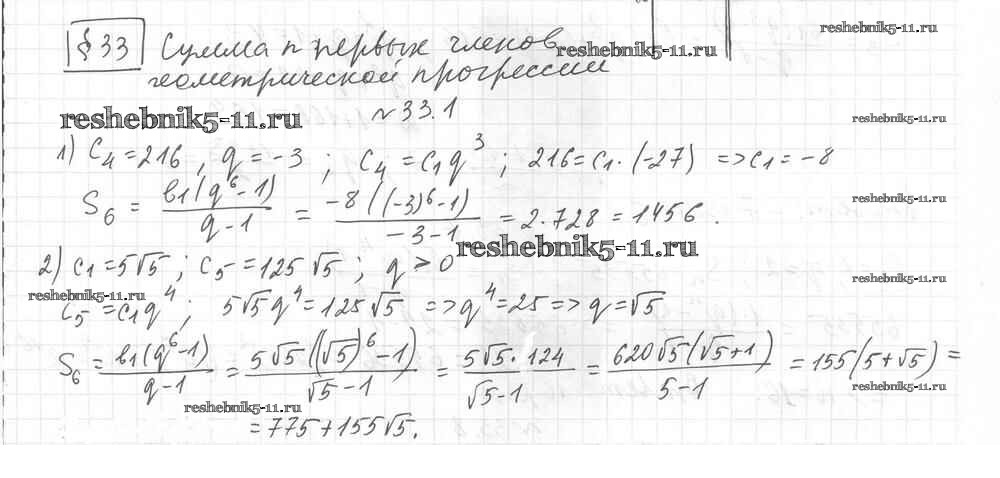 reshebnik5-11.ru
§ 33 Сумма n первых членов
reshebnik5-11.ru
геометрической прогрессии
reshebnik5-11.ru
№33.1
reshebnik5-11.ru
1) c₄ = 216 , q = -3 ; c₄ = c₁q³ ; 216 = c₁·(-27) => c₁ = -8
S₆ = в₁(q⁶-1)/(q-1) = -8((-3)⁶-1)/(-3-1) = 2·728 = 1456 .
reshebnik5-11.ru
reshebnik5-11.ru
2) c₁ = 5√5 ; c₅ = 125√5 ; q > 0
reshebnik5-11.ru
reshebnik5-11.ru
c₅ = c₁q⁴ ; 5√5 q⁴ = 125√5 => q⁴ = 25 => q = √5
S₆ = в₁(q⁶-1)/(q-1) = 5√5((√5)⁶-1)/(√5-1) = 5√5·124/(√5-1) = 620√5(√5+1)/(5-1) = 155(5+√5) =
reshebnik5-11.ru
reshebnik5-11.ru
= 775 + 155√5.